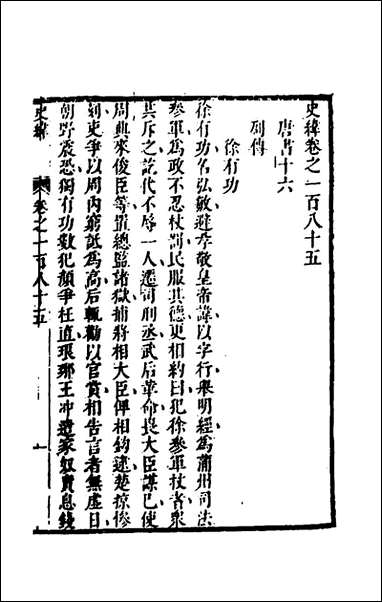 史緯卷之一百八十五
唐書十六
列傳
徐有功
徐有功名弘敏避孝敬皇帝諱以字行舉明經爲蒲州司法
參軍爲政不忍杖罰民服其德更相約曰犯徐參軍杖者眾
共斥之訖代不辱一人遷司刑丞武后革命畏大臣謀已使
周興來俊臣等置總監諸獄捕將相大臣俾相鉤逮楚掠慘
刻吏爭以周內窮詆爲高后輒勸以官賞相告言者無虛日
朝野震恐獨有功數犯顏爭枉直琅琊王沖遣家奴責息錢
史緯
卷之一百八十五
一